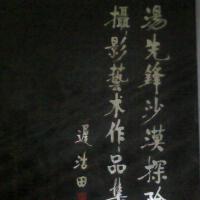 湯先鋒沙漠探險
攝影藝术作品集
遲浩田